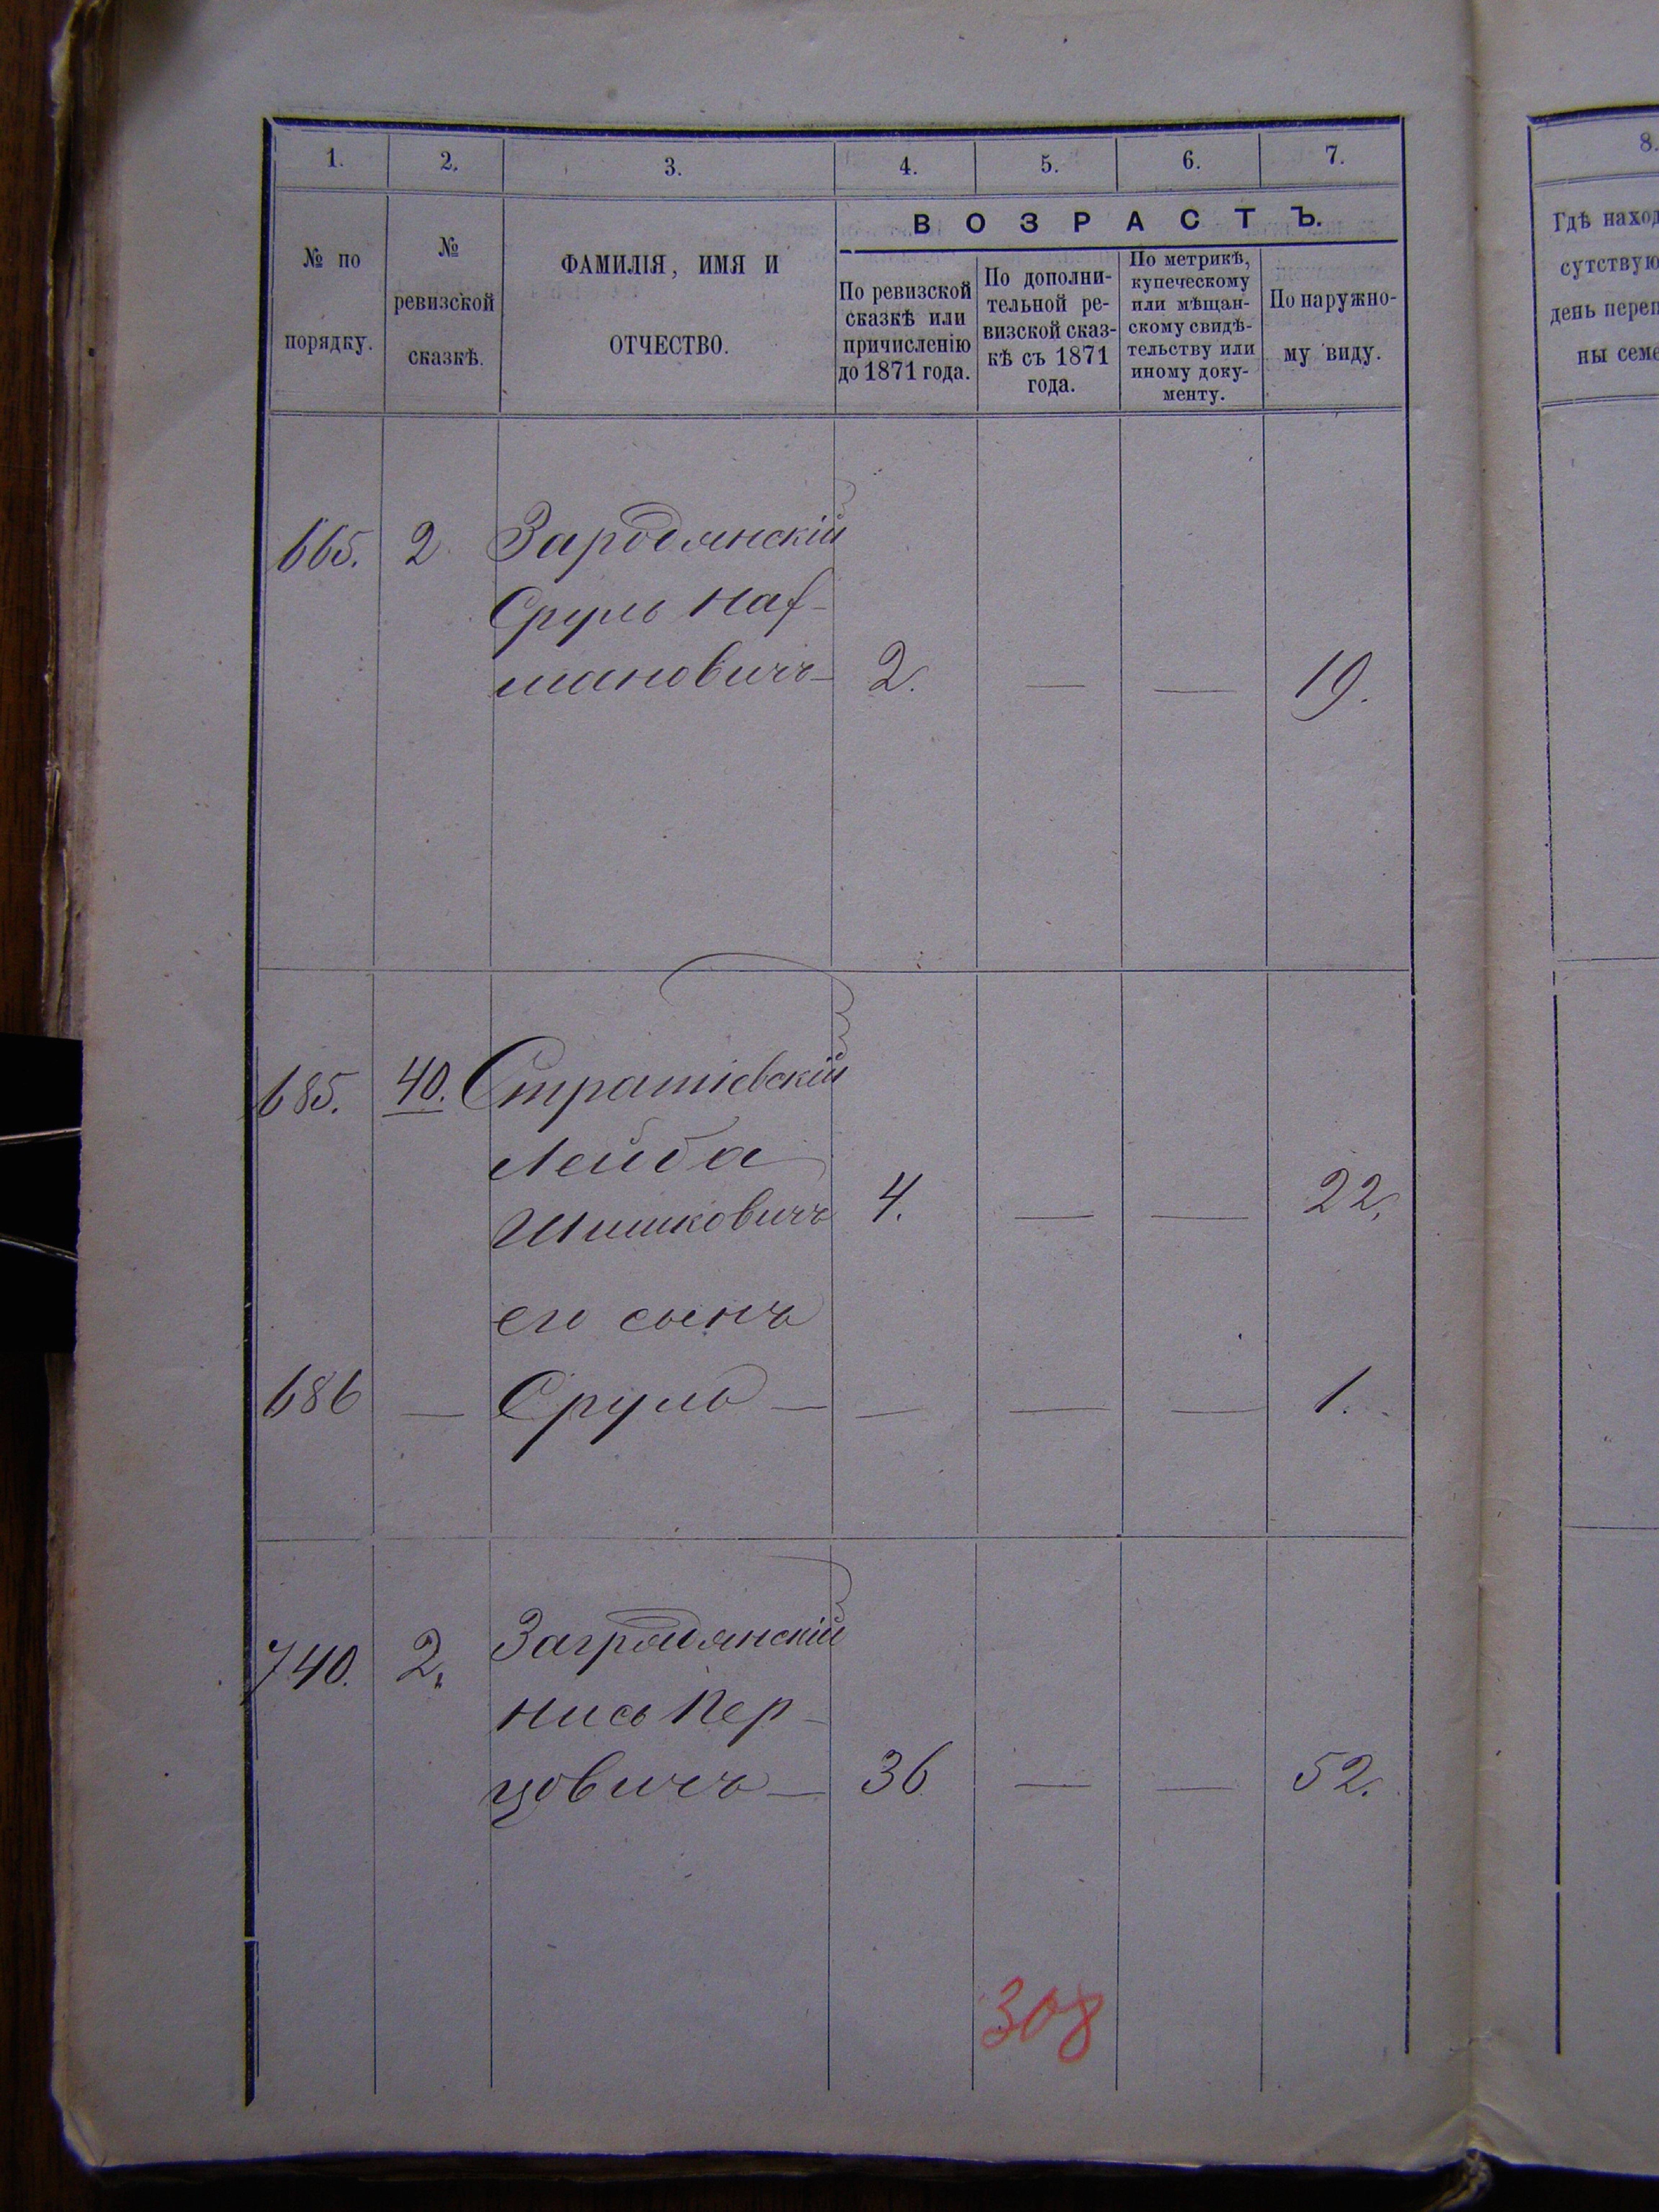 1.
2.
3.
4.
5.
6.
7.
№ по
порядку.
№
ревизской
сказкѣ.
ФАМИЛІЯ, ИМЯ И
ОТЧЕСТВО.
ВОЗРАСТЪ.
По ревизской
сказкѣ или
причисленію
до 1871 года.
По дополни-
тельной ре-
визской сказ-
кѣ съ 1871
года.
По метрикѣ,
купеческому
или мѣщан-
скому свидѣ-
тельству или
иному доку-
менту.
По наружно-
му виду.
665. 2 Зародянскій
Сруль Наф-
мановичъ — 2. — — 19.
685. 40. Стратіевскій
Лейба
Шишковичъ 4. — — 22.
его сынъ
686 — Сруль — — — — 1.
740. 2. Загродянскій
Нись Пер-
цовичъ — 36 — — 52.
308
8.
Гдѣ наход
сутствую
день переп
ны семе